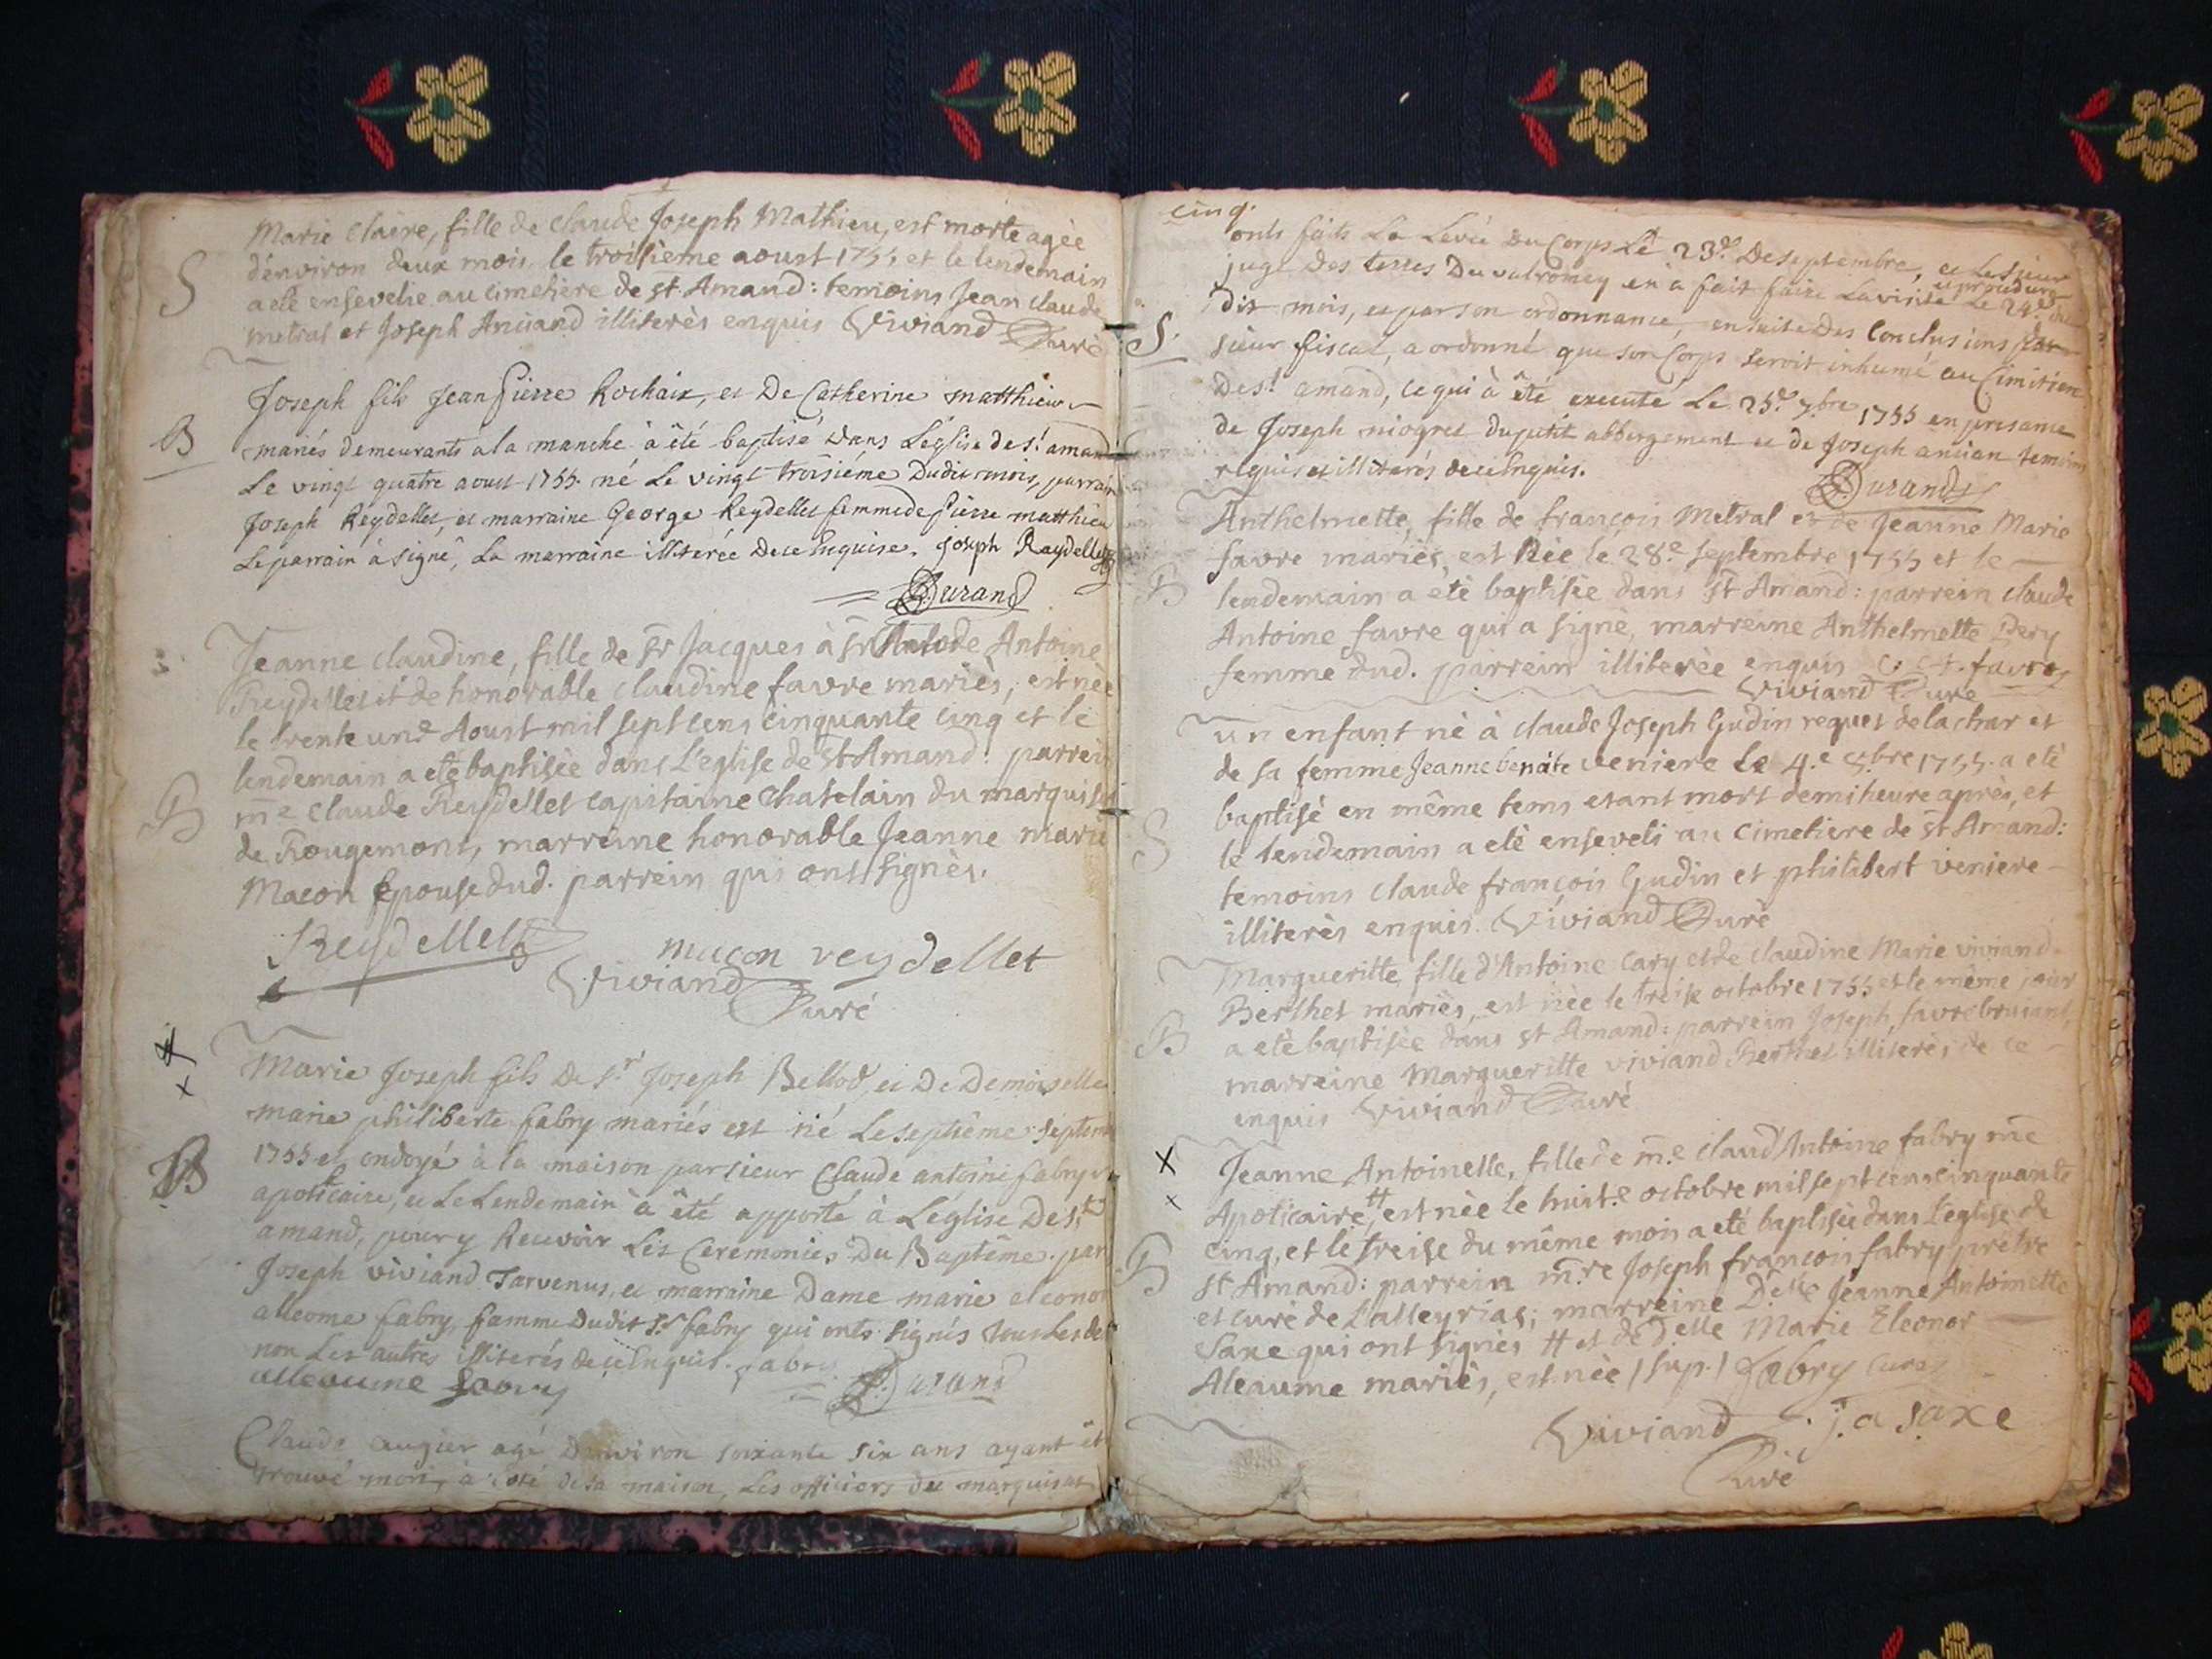 Marie Claire, fille de Claude Joseph Mathieu, est morte agèe
d'environ deux mois, le troisieme aoust 1755 et le lendemain
S
a etè ensevelie au cimetiere de st. Amand: temoins Jean Claude
metral et Joseph Ancian illiterès enquis Viviand Curè
Joseph fils Jean Pierre Rochaix, et De Catherine matthieu
B
mariés demeurants a la manche à été baptisé dans L'eglise de St. amand
Le vingt quatre aoust 1755. né Le vingt troisiéme Dudit mois, parrain
Joseph Reydellet, et marraine George Reydellet femme de Pierre matthieu
Le parrain à signé, La marraine illiterée De ce Enquise. joseph Raydellet
Durand
Jeanne Claudine, fille de Sr Jacques à Sr Antoine
Reydellet et de honorable Claudine favre mariès, est nèe
le trente une Aoust mil sept cens cinquante cinq et le
lendemain a etè baptisèe dans L'eglise de St Amand: parrein
B
me Claude Reydellet capitaine chatelain du marquisat
de Rougemont, marreine honorable Jeanne marie
Macon Epouse dud. parrein qui ont signès.
Reydellet
macon reydellet
Viviand
Curé
Marie Joseph fils De Sr Joseph Bellod, et De Demoiselle
marie philiberte fabry mariés est né Le septiême septem
B
1755 et ondoyé à la maison par sieur Claude antoine fabry
apoticaire, et Le Lendemain à été apporté à L'eglise De St
amand, pour y Recevoir Les Ceremonies Du Baptême. par
Joseph viviand Tarvenus, et marraine Dame marie eleonor
alleome fabry, famme Dudit Sr fabry qui onts signés
non Les autres illiterés de ce Enquis. fabry
alleaume fabry
Durand
Claude augier agé D'environ soixante six ans ayant été
trouvé mort, à coté de sa maison, Les officiers du marquisat
cinq.
onts faits La Levée Du Corps Le 23e. De septembre, et Le sieur
juge Des terres Du valromey en à fait faire La visite Le 24e du
S.
dit mois, et par son ordonnance, ensuite Des Conclusions
sieur fiscal, a ordonné que son Corps seroit inhumé au Cimitiere
De St. amand, ce qui à été executé Le 25e. 7bre 1755 en presance
de Joseph niogret du petit abbergement et de Joseph ancian temoins
requis et illiterés de ce Enquis.
Durand
Anthelmette, fille de françois Metral et de Jeanne Marie
favre mariès, est Nèe le 28e septembre 1755 et le
B
lendemain a etè baptisèe dans St Amand: parrein Claude
Antoine favre qui a signè, marreine Anthelmette Pery
femme dud. parrein illiterèe enquis C. A. favre
Viviand Cure
un enfant nè à Claude Joseph Gudin requet de la char et
de sa femme Jeanne benoite veniere Le 4.e 8bre 1755. a etè
S
baptisè en même tems etant mort demi heure après, et
le lendemain a etè enseveli au cimetiere de St Amand:
temoins Claude françois Gudin et philibert veniere
illiterès enquis. Viviand Curè
Margueritte, fille d'Antoine Cary et de Claudine Marie viviand
Berthet mariès, est nèe le treise octobre 1755 et le même jour
B
a etè baptisèe dans St Amand: parrein Joseph favre bruiant,
marreine Margueritte viviand Berthet illiterès de ce
enquis Viviand Curé
Jeanne Antoinette, fille de m.e Claud Antoine fabry me
Apoticaire #, est nèe le huit.e octobre mil sept cens cinquante
cinq, et le treise du même mois a etè baptisèe dans l'eglise de
B
St Amand: parrein m.re Joseph françois fabry prêtre
et curè de Lalleyrias; marreine D.elle Jeanne Antoinette
Saxe qui ont signès # et de D.elle Marie Eleonor
Aleaume mariès, est nèe /sup./ fabry Curé
Viviand
J. a saxe
Curé